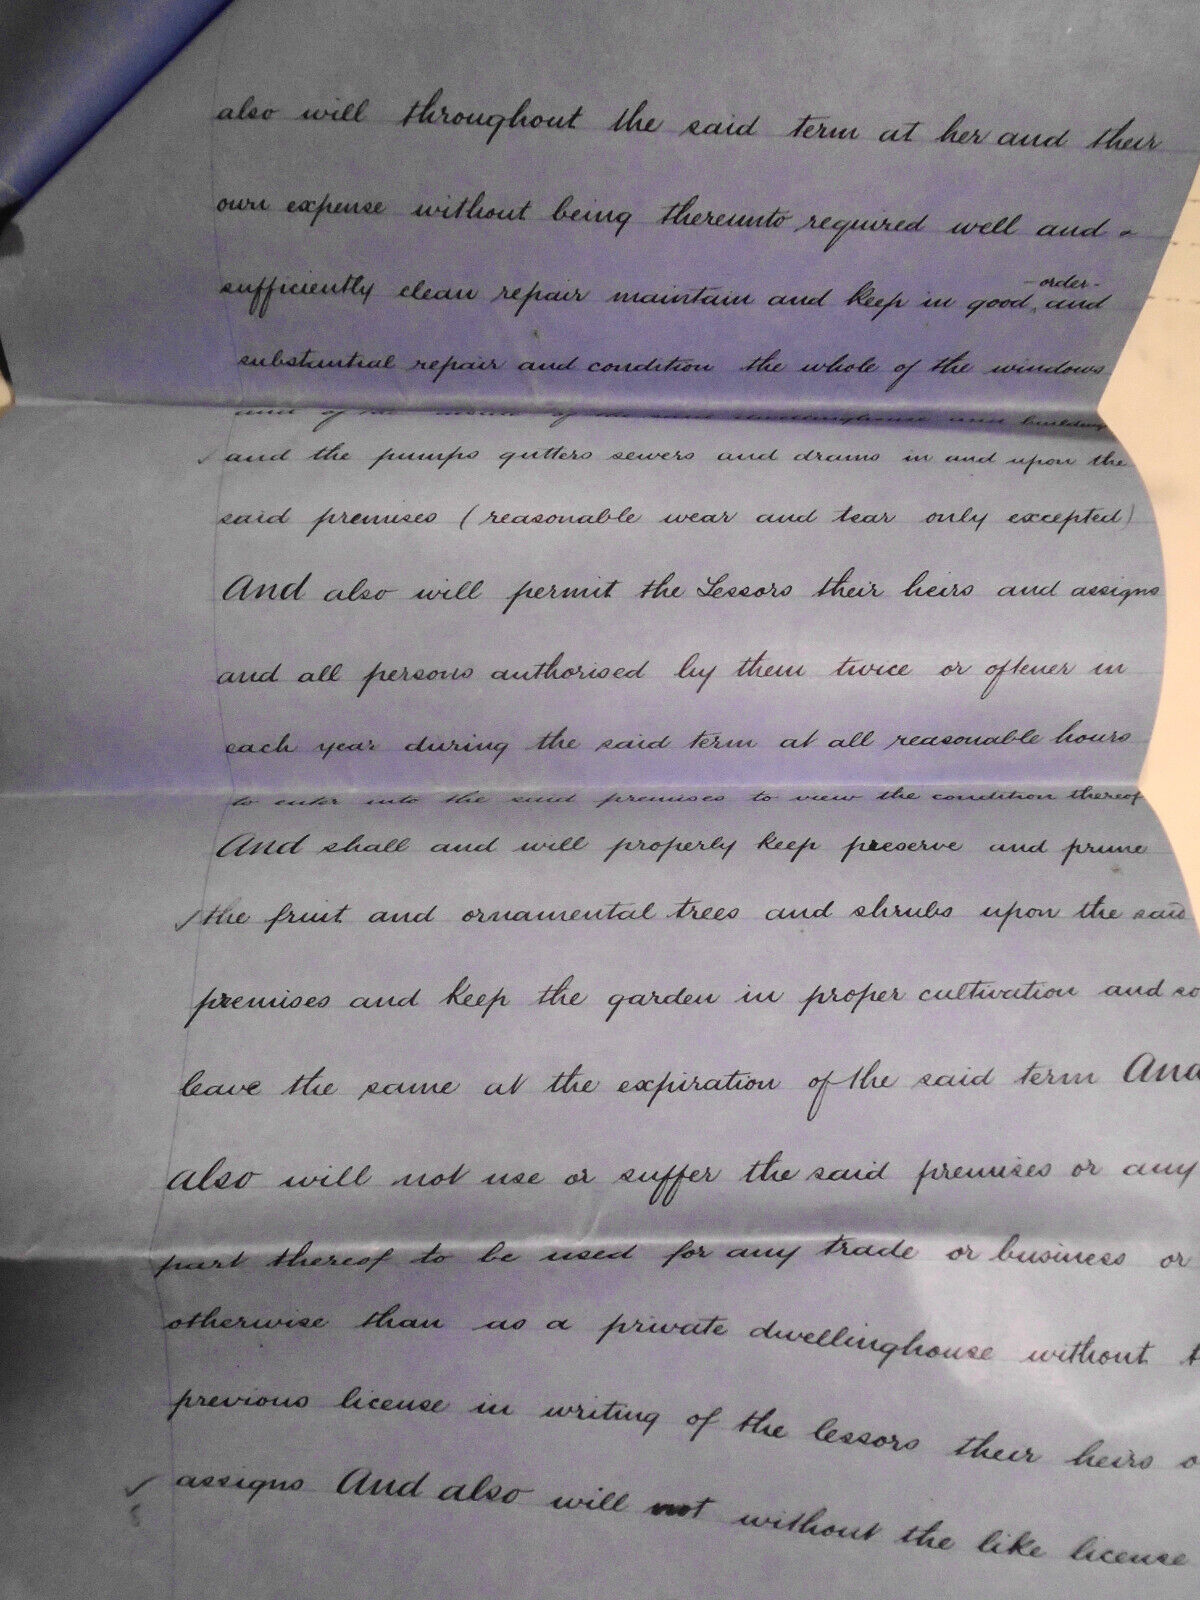 also will throughout the said term at her and their
own expense without being thereunto required well and -
sufficiently clean repair maintain and keep in good, and
- order -
substantial repair and condition the whole of the windows
and of the of the said dwellinghouse and building
and the pumps gutters sewers and drains in and upon the
said premises (reasonable wear and tear only excepted)
And also will permit the Lessors their heirs and assigns
and all persons authorised by them twice or oftener in
each year during the said term at all reasonable hours
to enter into the said premises to view the condition thereof
And shall and will properly keep preserve and prune
the fruit and ornamental trees and shrubs upon the said
premises and keep the garden in proper cultivation and so
leave the same at the expiration of the said term And
also will not use or suffer the said premises or any
part thereof to be used for any trade or business or
otherwise than as a private dwellinghouse without
previous license in writing of the lessors their heirs
assigns And also will not without the like license